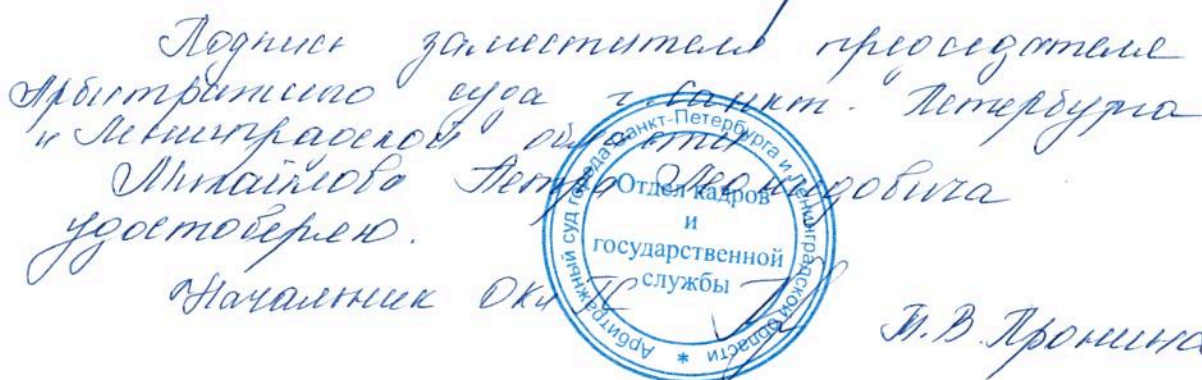 Подпись заместителя председателя
Арбитражного суда г. Санкт-Петербурга
и Ленинградской области
Михайлова Петра Леонидовича
удостоверяю.
Начальник ОК и ГС
Т.В. Пронина
Арбитражный суд города Санкт-Петербурга и Ленинградской области *
Отдел кадров
и
государственной
службы